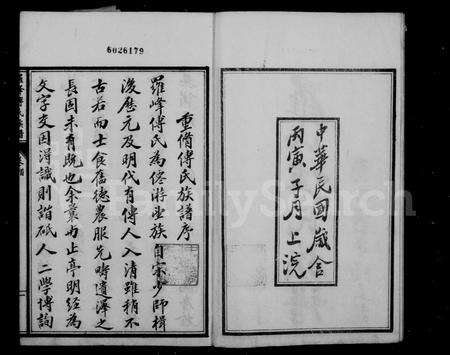 6026179
中華民國歲合
丙寅子月上浣
重脩傅氏族譜序
羅峰傅氏為俗游望族自宗少師楫
後歷元及明代有傳人入清雖稍不
古若而士食舊德農服先疇遺澤之
長固未有既也余曩与止亭明經為
文字交因得識則諧砥人二學博詢
FamilySearch